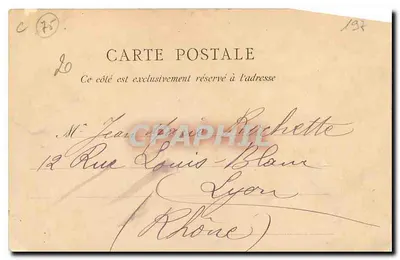 C 75 193
20
CARTE POSTALE
Ce côté est exclusivement réservé à l'adresse
Mr Jean Marie Rochette
CPAPHIL
12 Rue Louis-Blanc
Lyon
(Rhône)